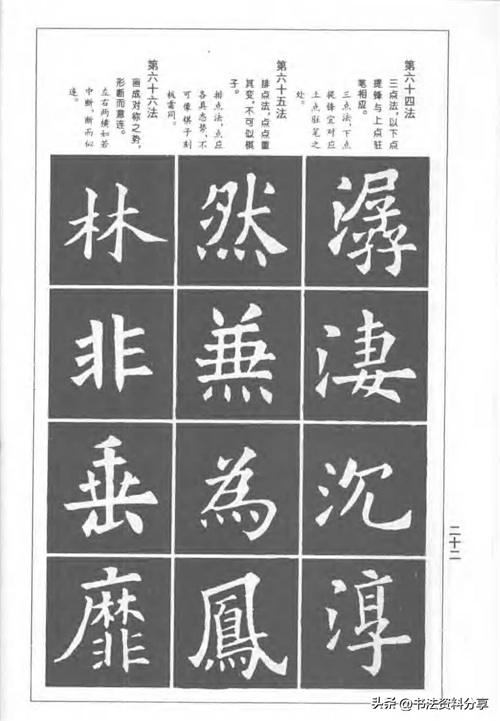 第六十四法
三点法，以下点
提锋与上点驻
笔相应。
三点法，下点
提锋宜对应
上点驻笔之
处。
潺
淒
沉
淳
第六十五法
排点法，点点重
其变，不可似棋
子。
排点法，点应
各具态势，不
可像棋子刻
板雷同。
然
兼
為
鳳
第六十六法
画成对称之势，
形断而意连。
左右两绩如若
中断，断而似
连。
林
非
垂
靡
二十二
头条@书法资料分享